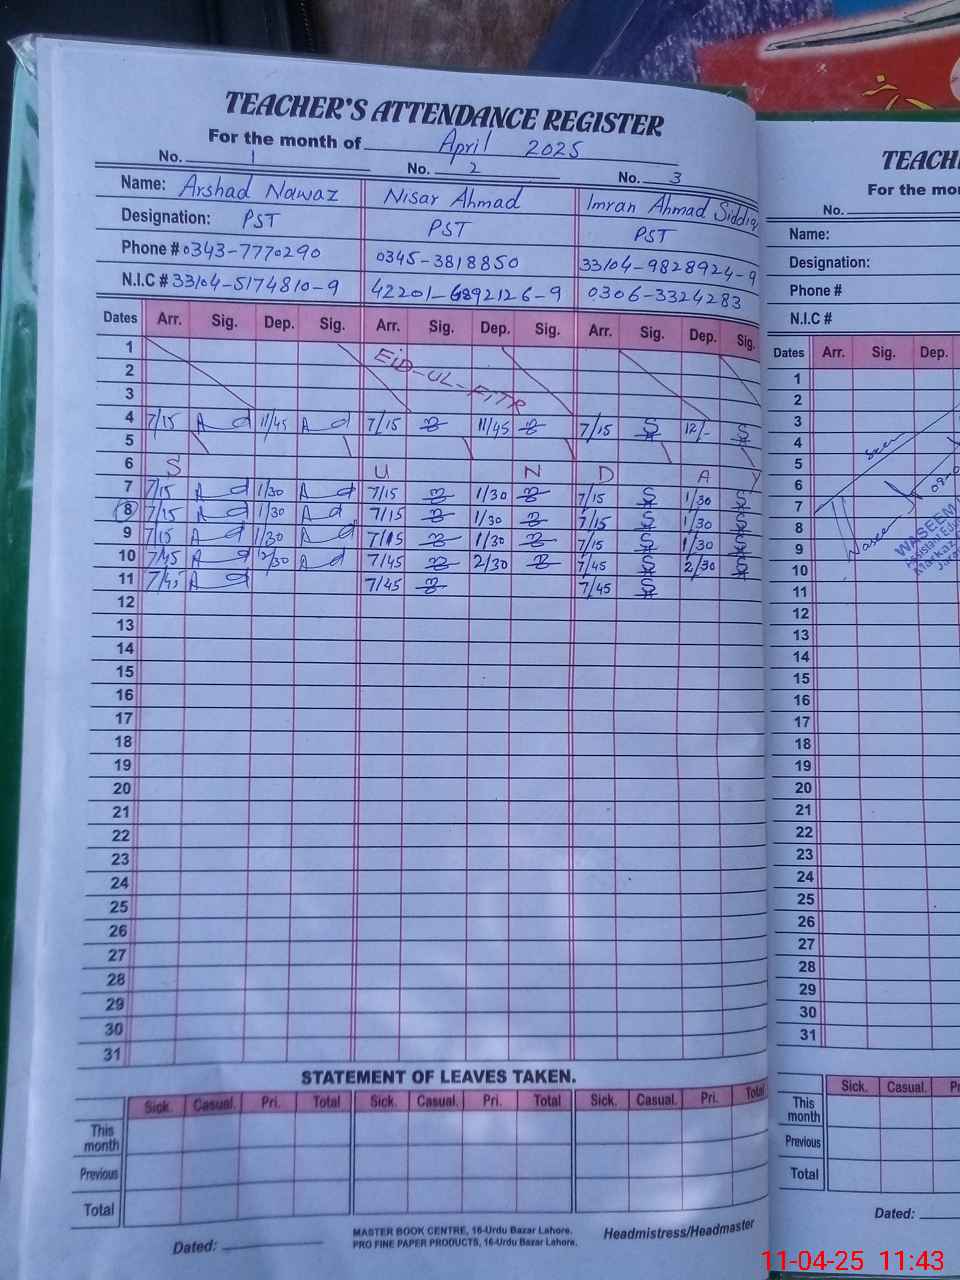 TEACHER'S ATTENDANCE REGISTER
For the month of April 2025
No. 1 No. 2 No. 3
Name: Arshad Nawaz Nisar Ahmad Imran Ahmad Siddiq
Designation: PST PST PST
Phone # 0343-7770290 0345-3818850 33104-9828924-9
N.I.C # 33104-5174810-9 42201-6892126-9 0306-3324283
Dates Arr. Sig. Dep. Sig. Arr. Sig. Dep. Sig. Arr. Sig. Dep. Sig.
1
2 EID-UL-FITR
3
4 7/15 11/45 7/15 11/45 7/15 12/-
5
6 S U N D A Y
7 7/15 1/30 7/15 1/30 7/15 1/30
8 7/15 1/30 7/15 1/30 7/15 1/30
9 7/15 1/30 7/15 1/30 7/15 1/30
10 7/45 2/30 7/45 2/30 7/45 2/30
11 7/45 7/45 7/45
12
13
14
15
16
17
18
19
20
21
22
23
24
25
26
27
28
29
30
31
STATEMENT OF LEAVES TAKEN.
Sick. Casual. Pri. Total Sick. Casual. Pri. Total Sick. Casual. Pri. Total
This month
Previous
Total
Dated:
MASTER BOOK CENTRE, 16-Urdu Bazar Lahore.
PRO FINE PAPER PRODUCTS, 16-Urdu Bazar Lahore.
Headmistress/Headmaster
TEACH
For the mo
No.
Name:
Designation:
Phone #
N.I.C #
Dates Arr. Sig. Dep.
1
2
3
4 Seen
5
6
7
8
9 WASEEM
10
11
12
13
14
15
16
17
18
19
20
21
22
23
24
25
26
27
28
29
30
31
Sick. Casual.
This month
Previous
Total
Dated:
11-04-25 11:43